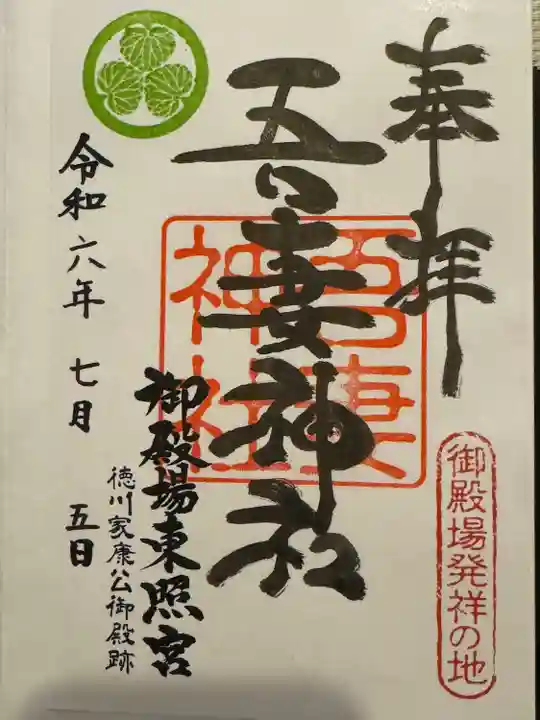 奉拝
御殿場発祥の地
吾妻神社
吾妻
神社
御殿場東照宮
徳川家康公御殿跡
令和六年 七月 五日